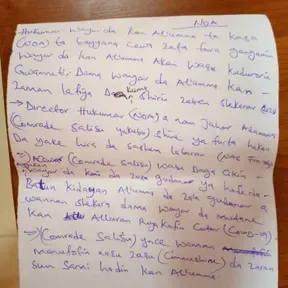 NOA
→ Hukumar Wayar da Kan Al'umma ta Kasa
(NOA) ta bayyana cewa zata fara gangamin
Wayar da Kan Al'umma Akan Wasu Kudurorin
Gwamnati Dama Wayar da Al'umma Kan
zaman lafiya Da kuma Shirin zaben shekarar
→ Director Hukumar (NOA) a nan Jahar Adamawa
(Comrade Salisu Yakubu) shine ya furta hakan
Da yake hira da sashen labaran
→ (Comrade Salisu) wasu Daga cikin
Wayar da Kai da zata gudanar ya hada da
Batun Kidayan Al'umma da za'a gudanar a
wannan shekara dama wayar da mutane
Kan Alluran Rigakafin Cutar (Covid-19).
→ (Comrade Salisu) yace wannan
manufofin zasu zaba (Cimmashine) da zaran
sun sami hadin Kan Al'umma.